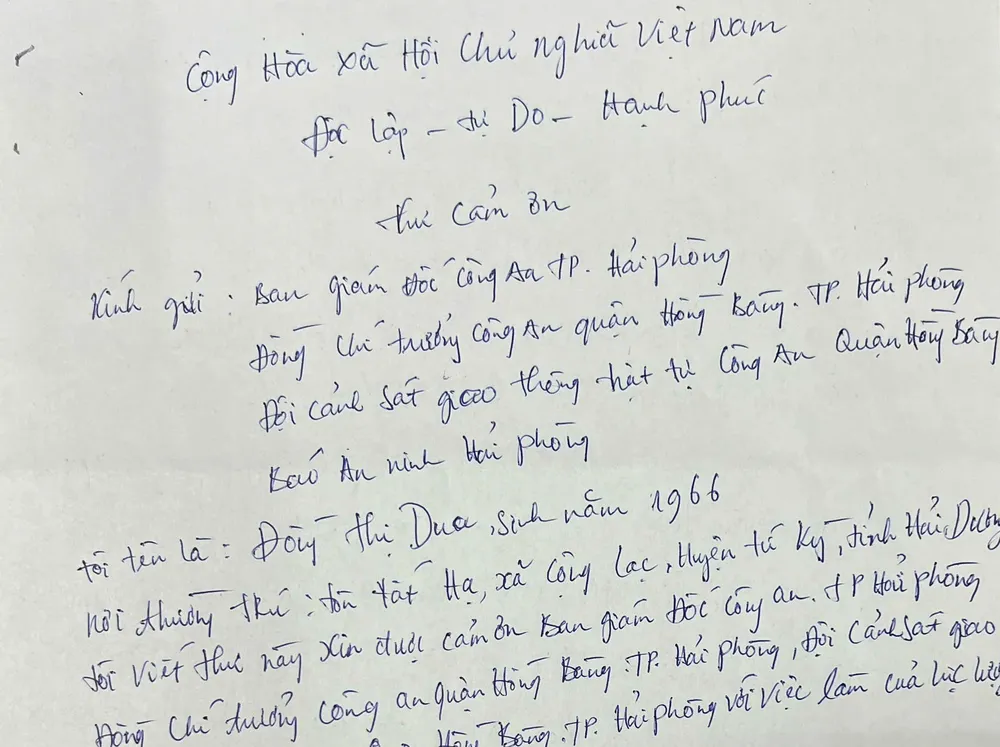 Cộng Hòa xã Hội Chủ nghĩa Việt Nam
Độc lập - tự Do - Hạnh phúc
thư cảm ơn
Kính gửi : Ban giám Đốc Công An TP. Hải phòng
Đồng Chí trưởng Công An quận Hồng Bàng. TP. Hải phòng
Đội cảnh sát giao thông trật tự Công An Quận Hồng Bàng
Báo An ninh Hải phòng
tôi tên là : Đồng Thị Dua, sinh năm 1966
nơi thường trú : thôn tất Hạ, xã Cộng Lạc, Huyện tứ Kỳ, tỉnh Hải Dương
tôi viết thư này xin được cảm ơn Ban giám Đốc công an. TP Hải phòng
Đồng Chí trưởng công an quận Hồng Bàng. TP. Hải phòng, Đội cảnh sát giao
Hồng Bàng. TP. Hải phòng với việc làm của lực lượng